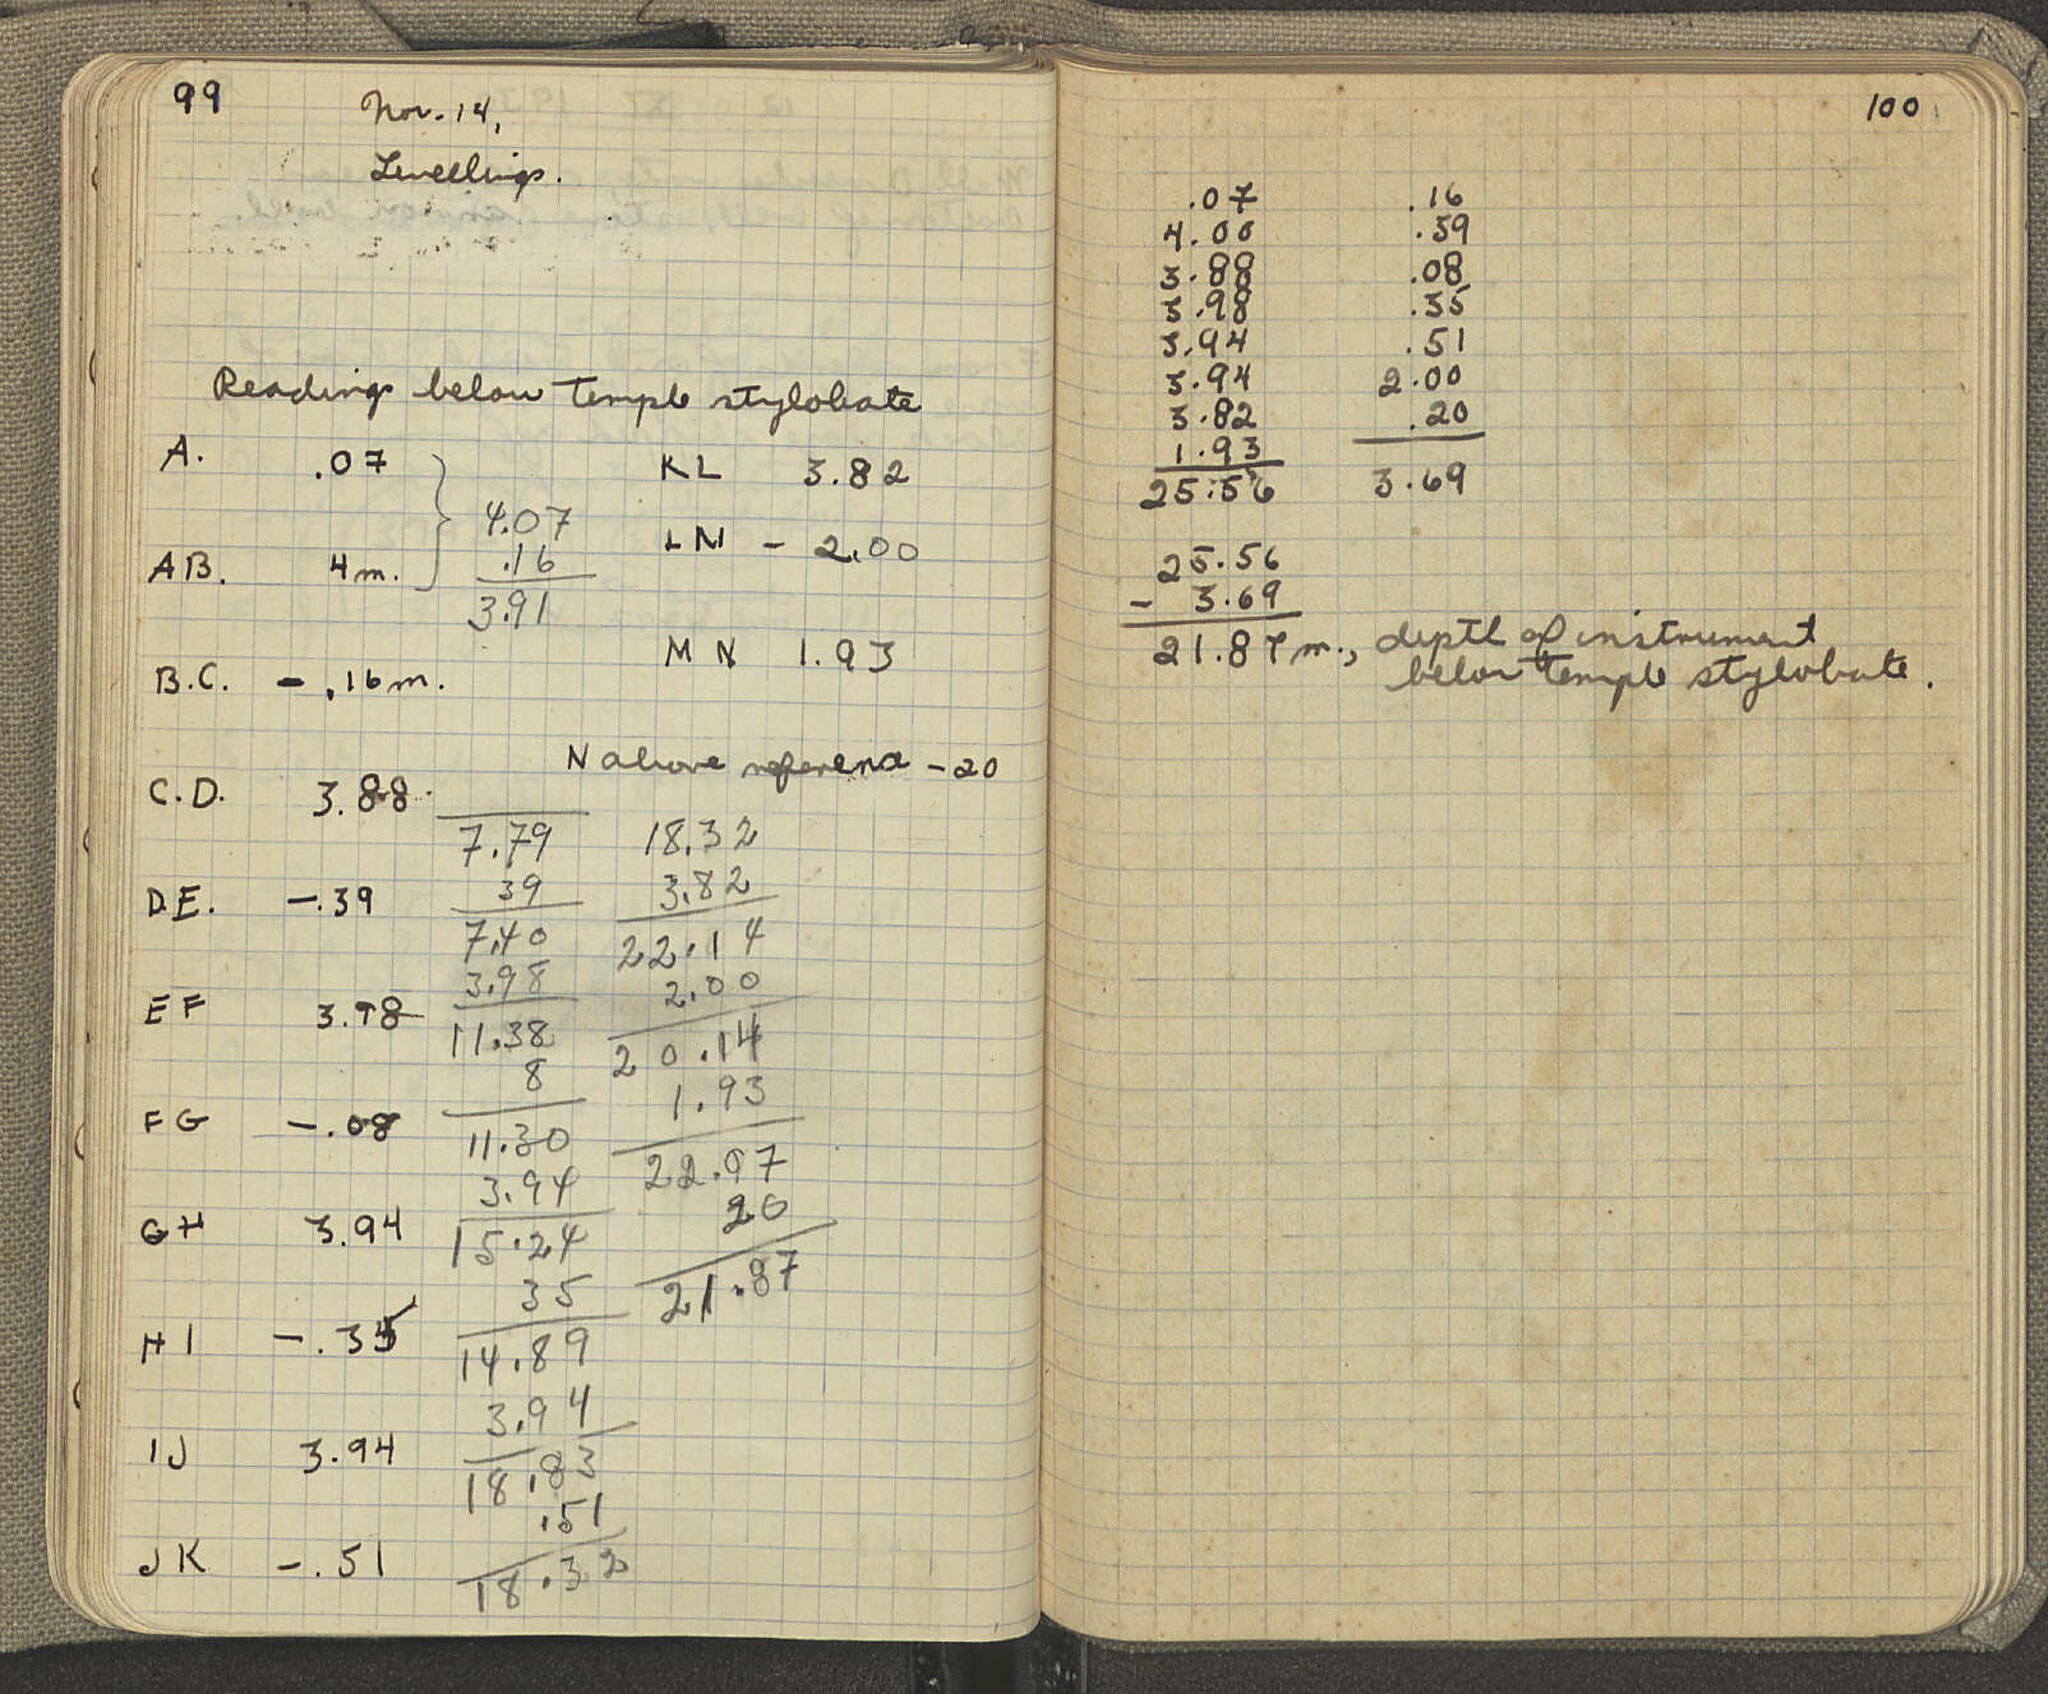 99
Nov. 14,
Levellings.
Readings below temple stylobate
A. .07
AB. 4m.
4.07
.16
3.91
B.C. - .16m.
C.D. 3.88
7.79
DE. -.39
39
7.40
EF 3.98
3.98
11.38
8
FG -.08
11.30
3.94
GH 3.94
15.24
35
HI -.35
14.89
3.94
IJ 3.94
18.83
.51
JK -.51
18.32
KL 3.82
LN - 2.00
MN 1.93
N above reference -20
18.32
3.82
22.14
2.00
20.14
1.93
22.07
20
21.87
100
.07
4.00
3.88
3.98
3.94
3.94
3.82
1.93
25.56
.16
.39
.08
.35
.51
2.00
.20
3.69
25.56
- 3.69
21.87m., depth of instrument
below temple stylobate.